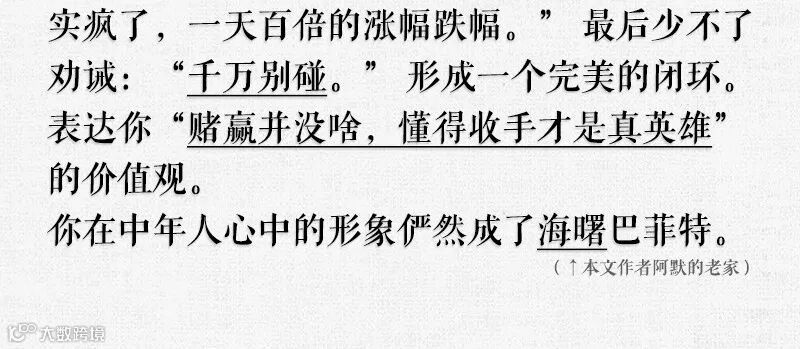 实疯了，一天百倍的涨幅跌幅。” 最后少不了
劝诫：“千万别碰。” 形成一个完美的闭环。
表达你“赌赢并没啥，懂得收手才是真英雄”
的价值观。
你在中年人心中的形象俨然成了海曙巴菲特。
（↑本文作者阿默的老家）
大数跨境